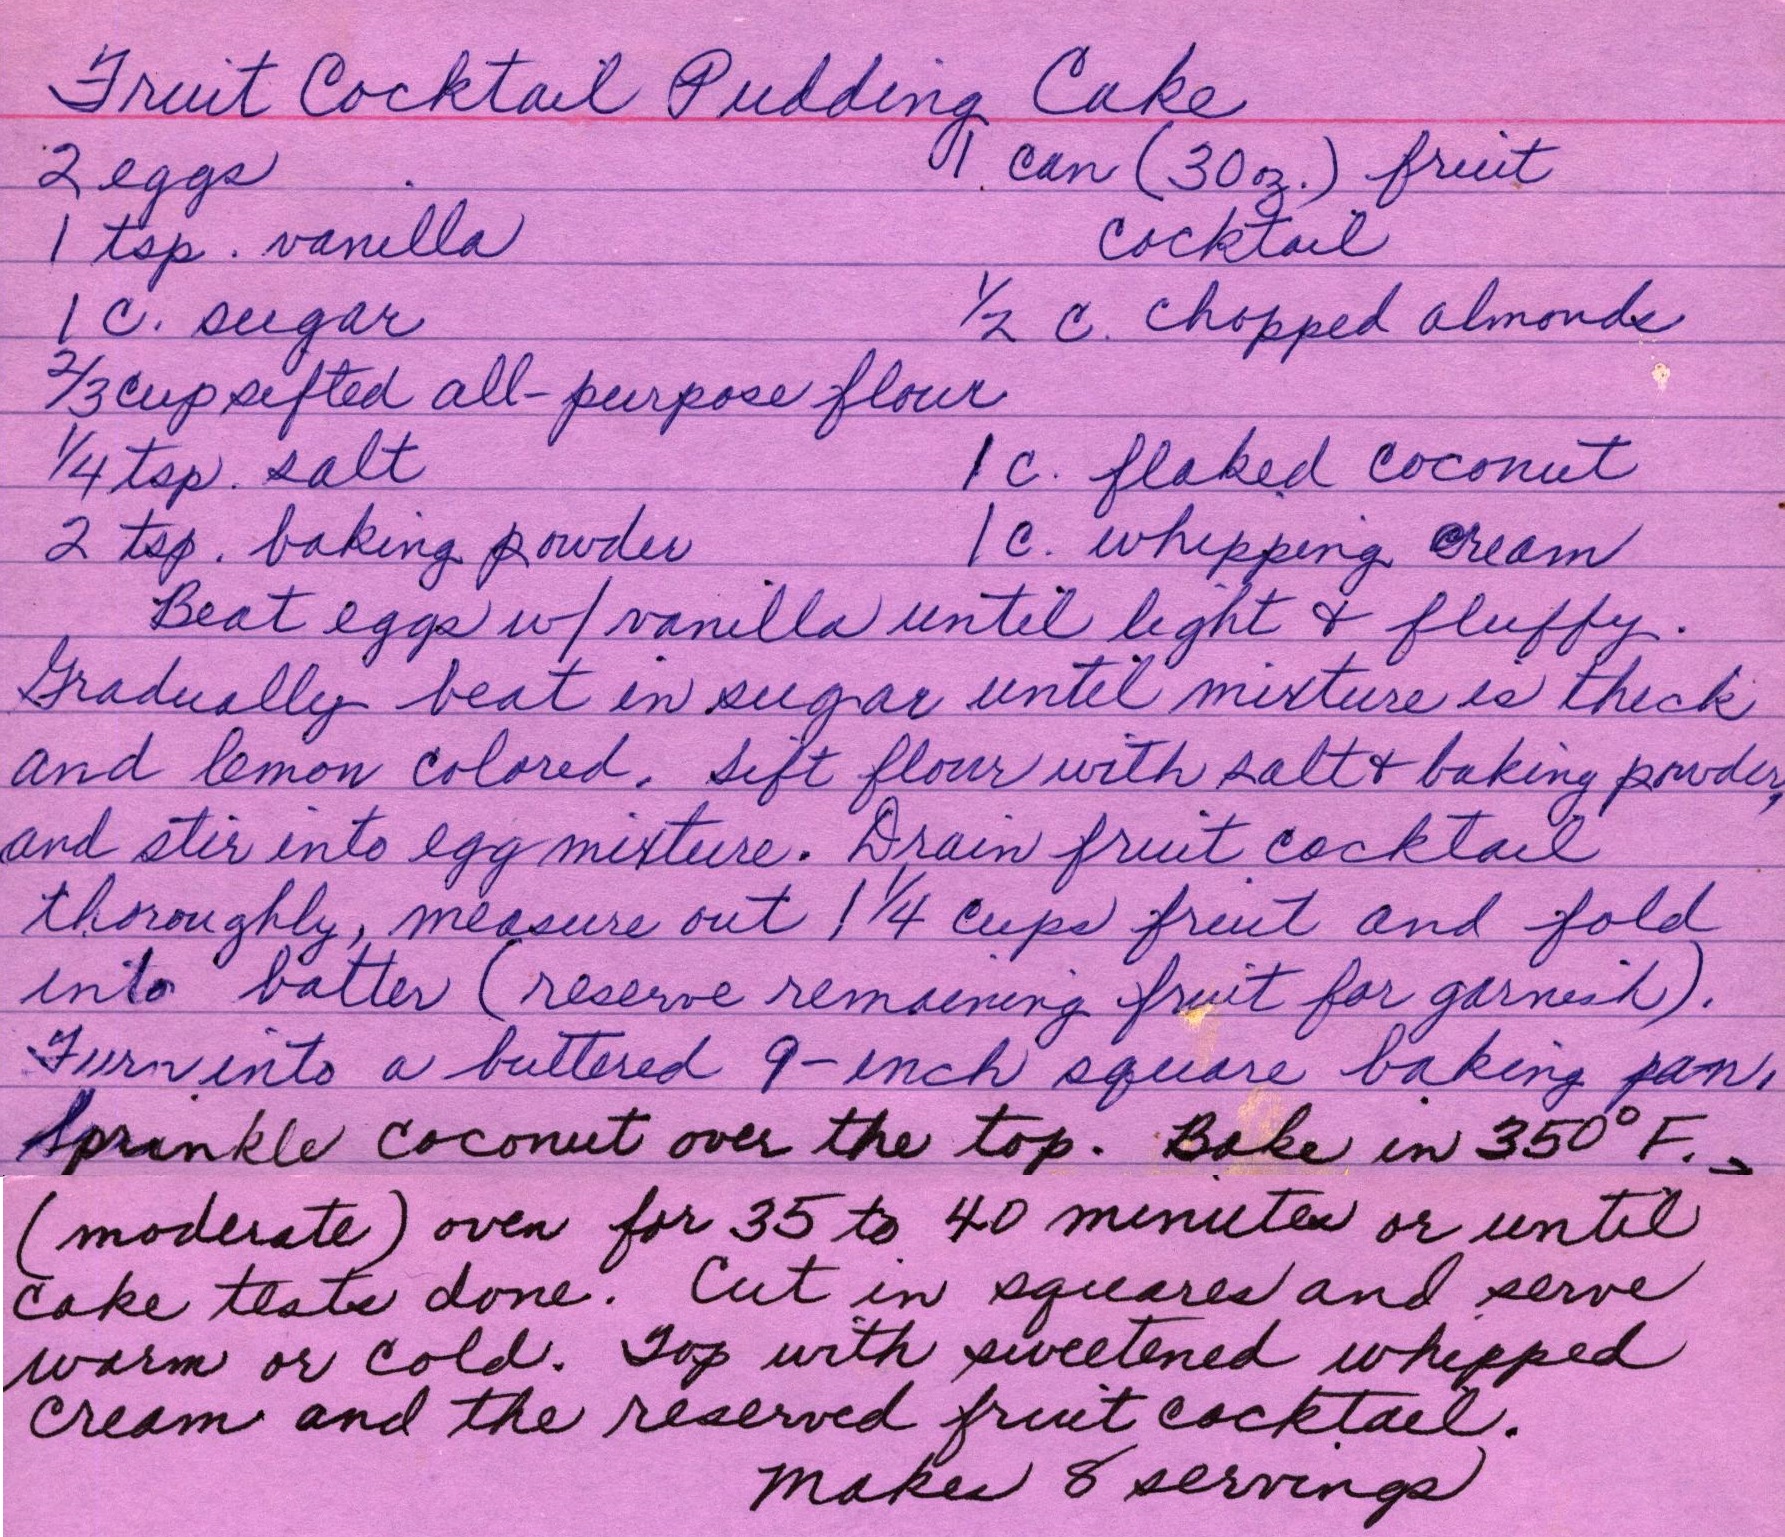 Fruit Cocktail Pudding Cake
2 eggs 1 can (30 oz.) fruit
1 tsp. vanilla cocktail
1 c. sugar 1/2 c. chopped almonds
2/3 cup sifted all-purpose flour
1/4 tsp. salt 1 c. flaked coconut
2 tsp. baking powder 1 c. whipping cream
Beat eggs w/ vanilla until light & fluffy.
Gradually beat in sugar until mixture is thick
and lemon colored. Sift flour with salt & baking powder,
and stir into egg mixture. Drain fruit cocktail
thoroughly, measure out 1 1/4 cups fruit and fold
into batter (reserve remaining fruit for garnish).
Turn into a buttered 9-inch square baking pan.
Sprinkle coconut over the top. Bake in 350° F. →
(moderate) oven for 35 to 40 minutes or until
cake tests done. Cut in squares and serve
warm or cold. Top with sweetened whipped
cream and the reserved fruit cocktail.
Makes 8 servings